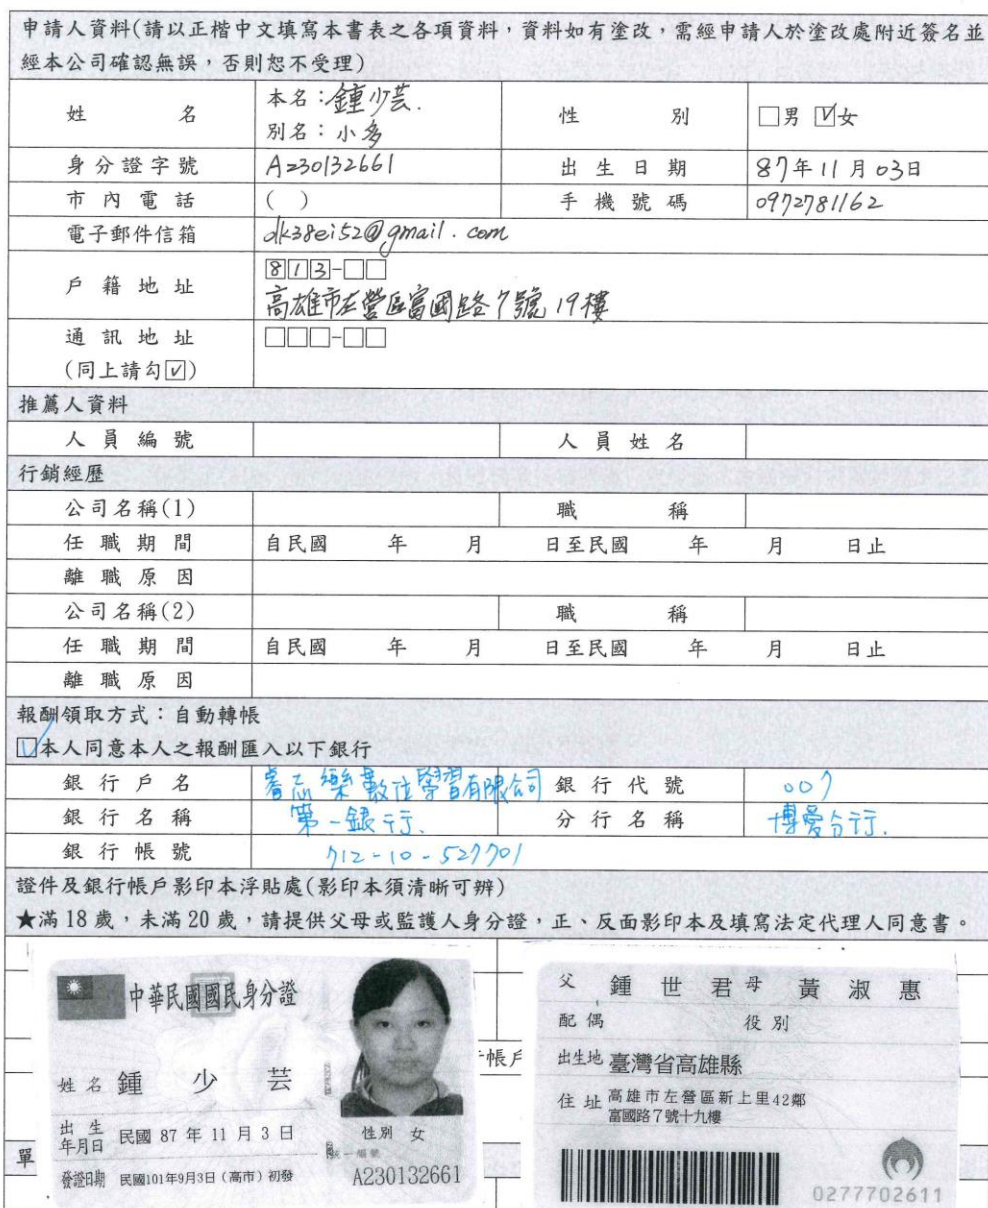 申請人資料(請以正楷中文填寫本書表之各項資料,資料如有塗改,需經申請人於塗改處附近簽名並
經本公司確認無誤,否則恕不受理)
姓 名 本名:鍾少芸. 性 別 □男 ☑女
別名:小多
身分證字號 A230132661 出生日期 87年11月03日
市內電話 ( ) 手機號碼 0972781162
電子郵件信箱 dk38ei52@gmail.com
戶籍地址 813-□□
高雄市左營區富國路7號19樓
通訊地址 □□□-□□
(同上請勾☑)
推薦人資料
人員編號 人員姓名
行銷經歷
公司名稱(1) 職 稱
任職期間 自民國 年 月 日至民國 年 月 日止
離職原因
公司名稱(2) 職 稱
任職期間 自民國 年 月 日至民國 年 月 日止
離職原因
報酬領取方式:自動轉帳
☑本人同意本人之報酬匯入以下銀行
銀行戶名 數位學習有限公司 銀行代號 007
銀行名稱 第一銀行. 分行名稱 博愛分行.
銀行帳號 712-10-527701
證件及銀行帳戶影印本浮貼處(影印本須清晰可辨)
★滿18歲,未滿20歲,請提供父母或監護人身分證,正、反面影印本及填寫法定代理人同意書。
中華民國國民身分證
姓名 鍾少芸
出生年月日 民國 87 年 11 月 3 日
性別 女
發證日期 民國101年9月3日(高市)初發
統一編號
A230132661
帳戶
單
父 鍾世君 母 黃淑惠
配偶 役別
出生地 臺灣省高雄縣
住址 高雄市左營區新上里42鄰
富國路7號十九樓
0277702611